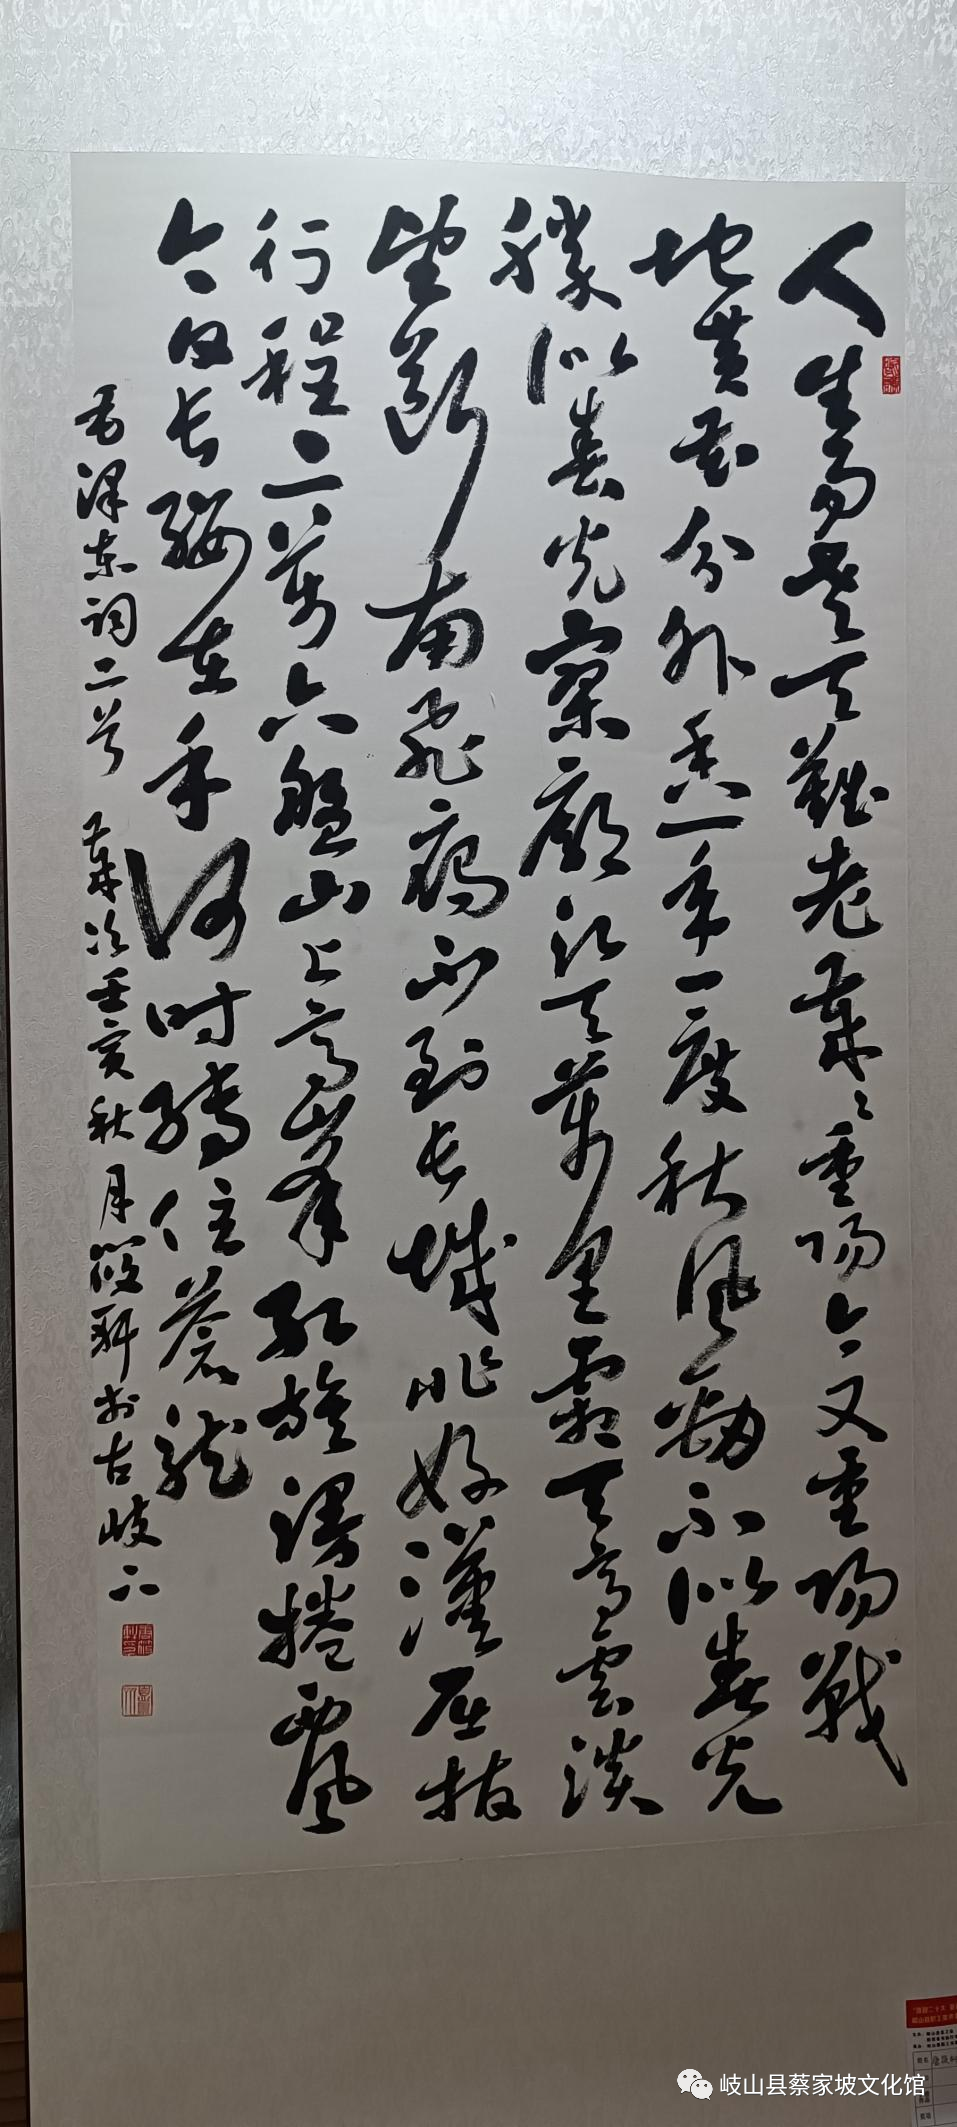 人生易老天难老岁岁重阳今又重阳战
地黄花分外香一年一度秋风劲不似春光
胜似春光寥廓江天万里霜天高云淡
望断南飞雁不到长城非好汉屈指
行程二万六盘山上高峰红旗漫捲西风
今日长缨在手何时缚住苍龙
毛泽东词二首 岁次壬寅秋月筱科于古岐下
岐山县蔡家坡文化馆